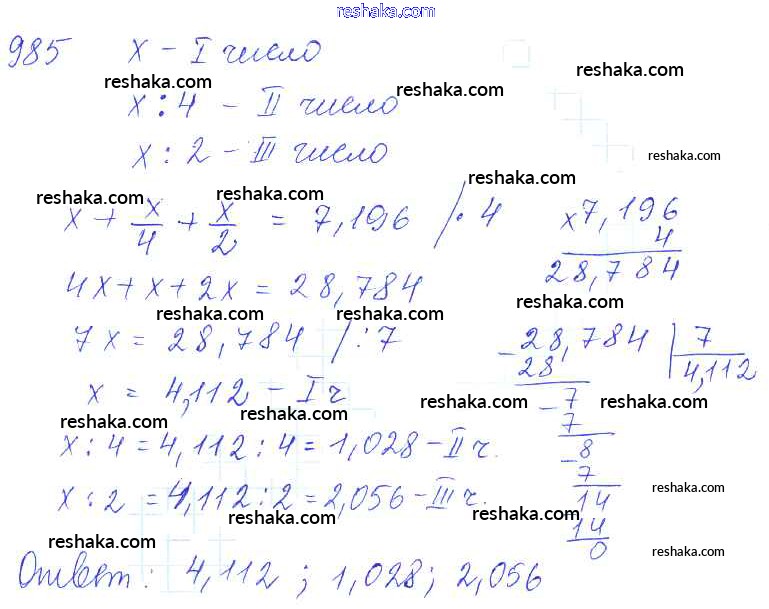 reshaka.com
985 x – I число
reshaka.com
reshaka.com
reshaka.com
x : 4 – II число
x : 2 – III число
reshaka.com
reshaka.com
reshaka.com
x + x/4 + x/2 = 7,196 / · 4
× 7,196
4
28,784
reshaka.com
4x + x + 2x = 28,784
reshaka.com
reshaka.com
reshaka.com
7x = 28,784 / : 7
x = 4,112 – I ч
reshaka.com
reshaka.com
reshaka.com
reshaka.com
28,784 | 7
4,112
– 28
– 7
7
– 8
7
14
14
0
x : 4 = 4,112 : 4 = 1,028 – II ч.
reshaka.com
reshaka.com
x : 2 = 4,112 : 2 = 2,056 – III ч.
reshaka.com
reshaka.com
reshaka.com
reshaka.com
reshaka.com
Ответ : 4,112 ; 1,028 ; 2,056